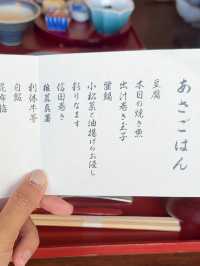 あさごはん
豆腐
本日の焼き魚
出汁巻き玉子
蟹鍋
小松菜と油揚げのお浸し
彩りなます
信田巻き
椎茸真薯
利休牛蒡
白飯